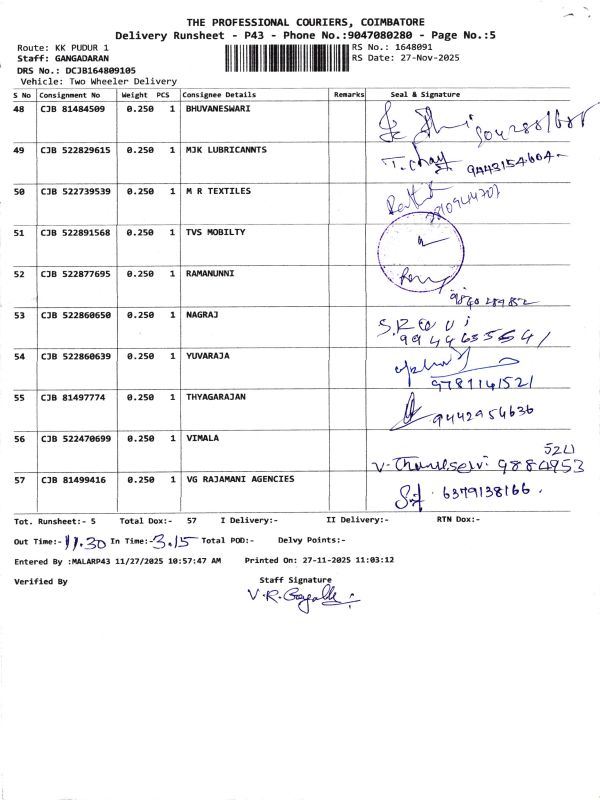 THE PROFESSIONAL COURIERS, COIMBATORE
Delivery Runsheet - P43 - Phone No.:9047080280 - Page No.:5
Route: KK PUDUR 1 RS No.: 1648091
Staff: GANGADARAN RS Date: 27-Nov-2025
DRS No.: DCJB164809105
Vehicle: Two Wheeler Delivery
S No Consignment No Weight PCS Consignee Details Remarks Seal & Signature
48 CJB 81484509 0.250 1 BHUVANESWARI
49 CJB 522829615 0.250 1 MJK LUBRICANNTS 9443154604
50 CJB 522739539 0.250 1 M R TEXTILES
51 CJB 522891568 0.250 1 TVS MOBILTY
52 CJB 522877695 0.250 1 RAMANUNNI
53 CJB 522860650 0.250 1 NAGRAJ
9944635541
54 CJB 522860639 0.250 1 YUVARAJA
9781141521
55 CJB 81497774 0.250 1 THYAGARAJAN 9442954636
56 CJB 522470699 0.250 1 VIMALA
9884953
57 CJB 81499416 0.250 1 VG RAJAMANI AGENCIES
6379138166.
Tot. Runsheet:- 5 Total Dox:- 57 I Delivery:- II Delivery:- RTN Dox:-
Out Time:- 11.30 In Time:- 3.15 Total POD:- Delvy Points:-
Entered By :MALARP43 11/27/2025 10:57:47 AM Printed On: 27-11-2025 11:03:12
Verified By Staff Signature